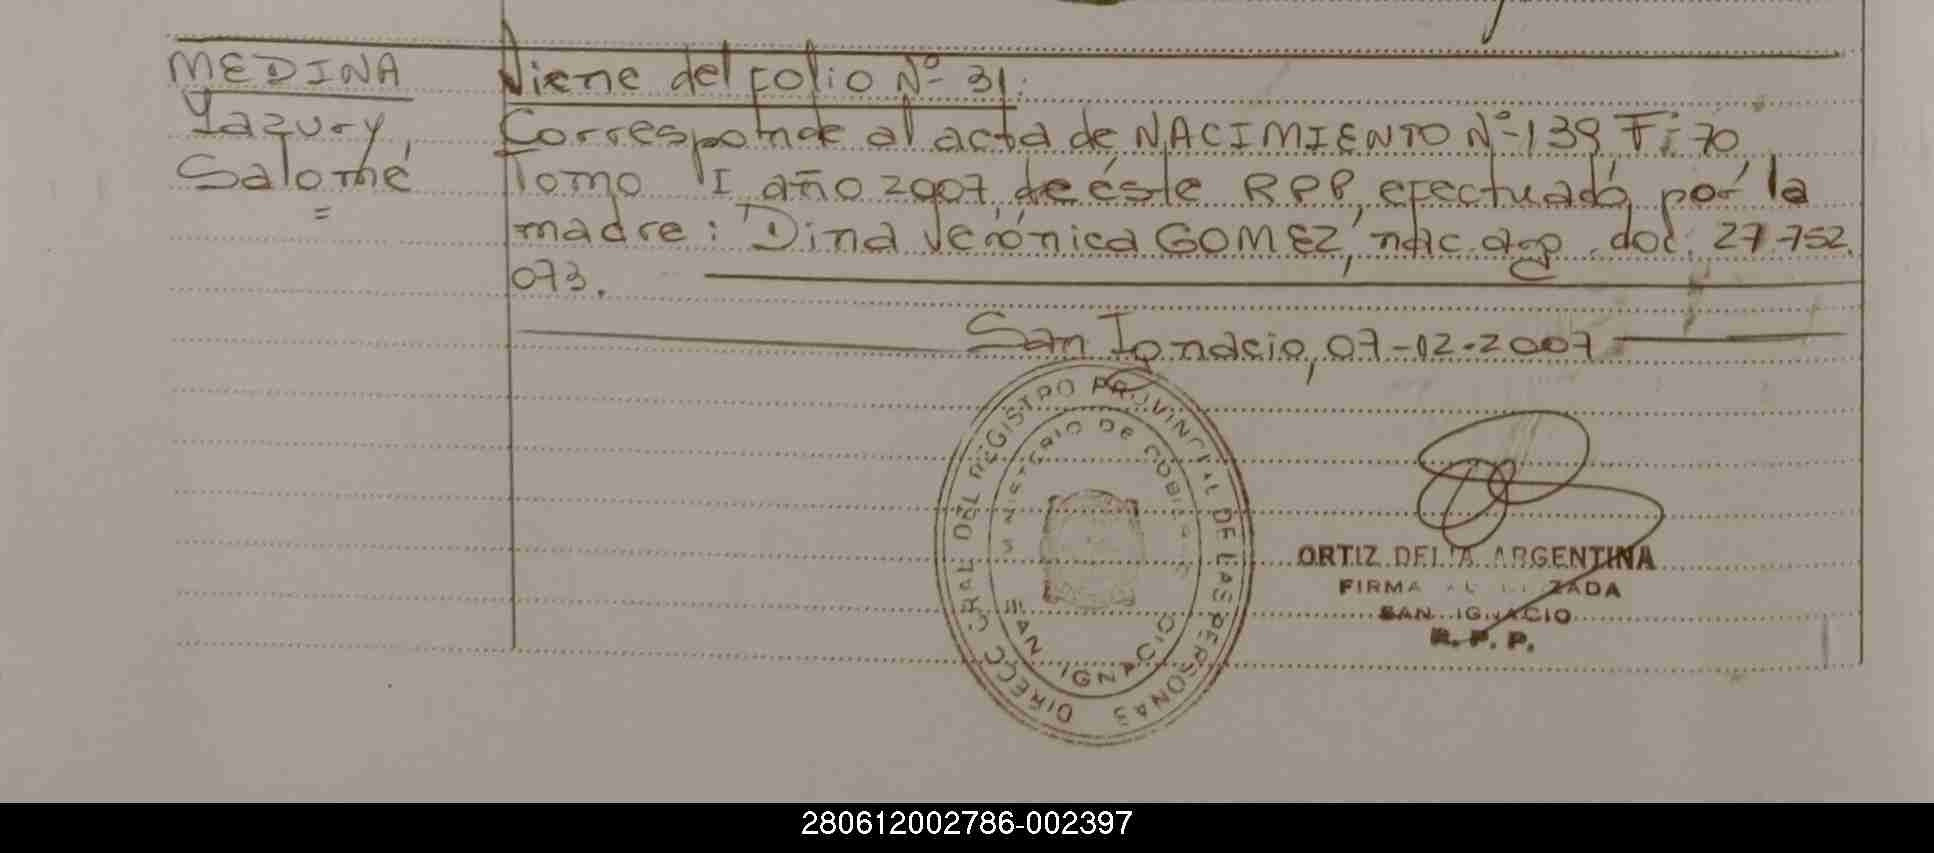 MEDINA
Yazury
Salomé
=
Viene del folio Nº 31.
Corresponde al acta de NACIMIENTO Nº 139 Fº 70
Tomo I año 2007, de éste RPP, efectuado por la
madre: Dina Verónica GOMEZ, nac. arg. doc. 27.752.
073.
San Ignacio, 07-02-2007
DIRECC. GRAL DEL REGISTRO PROVINCIAL DE LAS PERSONAS
MINISTERIO DE GOBIERNO
SAN IGNACIO
ORTIZ DELIA ARGENTINA
FIRMA AUTORIZADA
SAN IGNACIO
R. P. P.
280612002786-002397